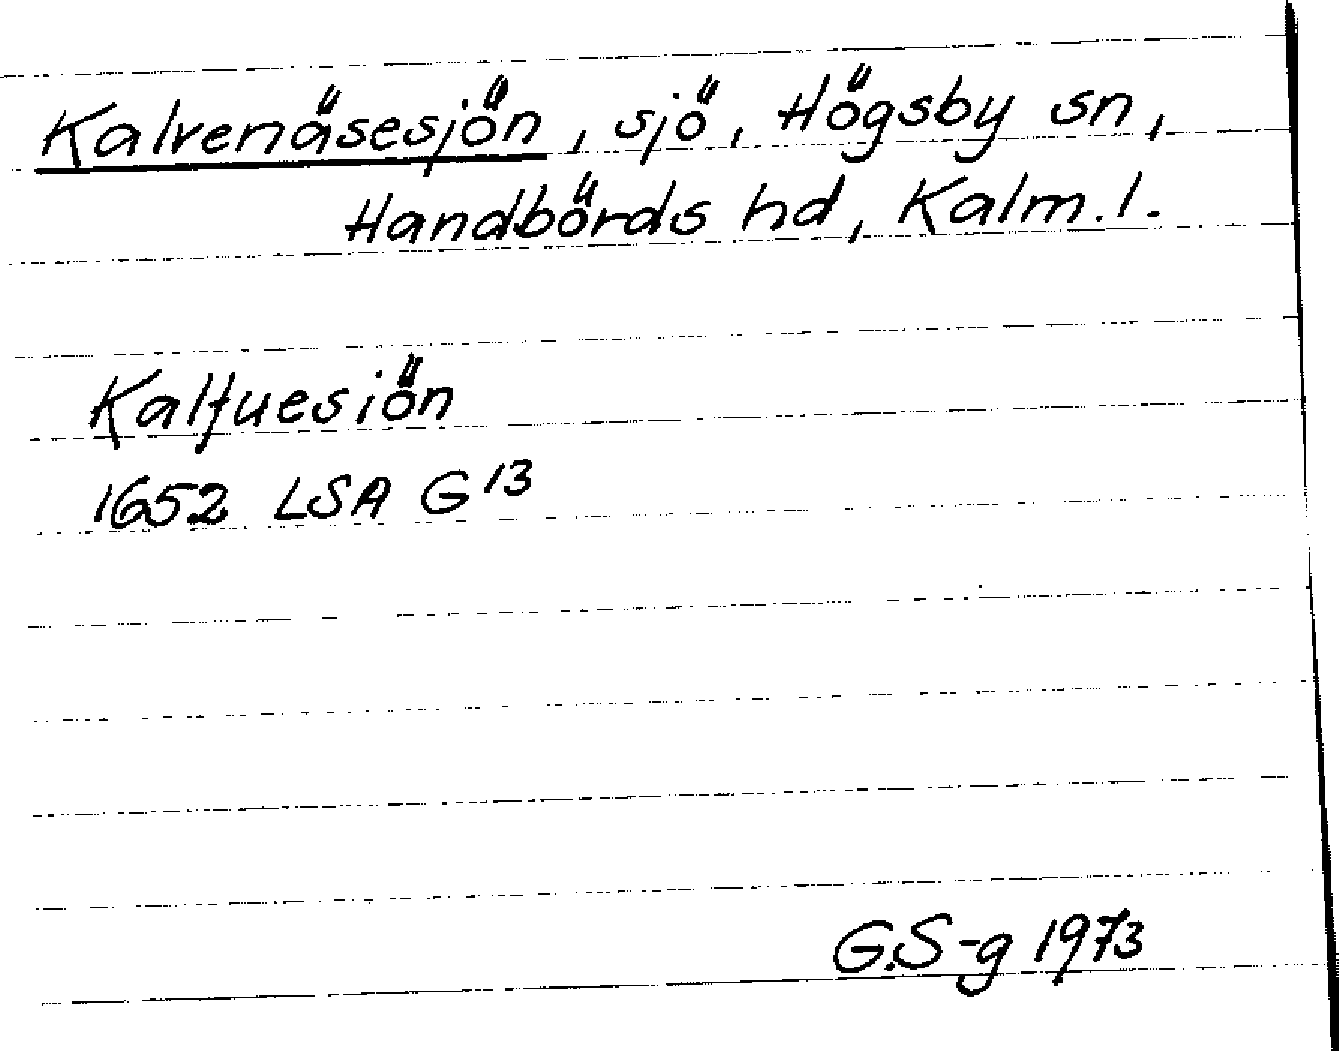 Kalvenäsesjön, sjö, Högsby sn,
Handbörds hd, Kalm.l.
Kalfuesiön
1652 LSA G 13
G.S-g 1973